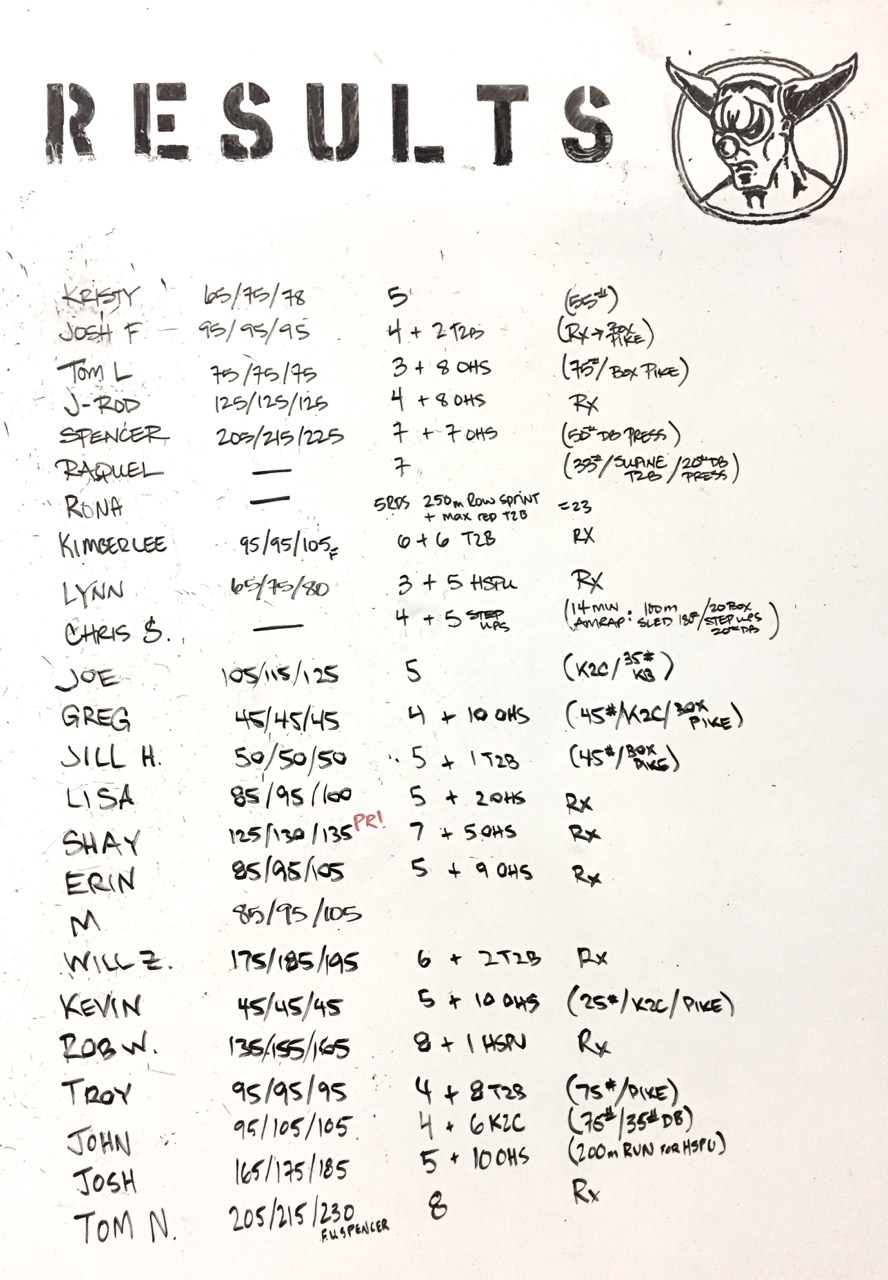 RESULTS
KRISTY 65/75/78 5 (55#)
JOSH F 95/95/95 4 + 2 T2B (RX→BOX PIKE)
TOM L 75/75/75 3 + 8 OHS (75#/BOX PIKE)
J-ROD 125/125/125 4 + 8 OHS RX
SPENCER 205/215/225 7 + 7 OHS (50# DB PRESS)
RAQUEL — 7 (33#/SUPINE T2B/20# DB PRESS)
RONA — 5RDS 250m Row sprint + max rep T2B =23
KIMBERLEE 95/95/105F 6 + 6 T2B RX
LYNN 65/75/80 3 + 5 HSPU RX
CHRIS S. — 4 + 5 STEP UPS (14 MIN AMRAP: 100m SLED 180#/20 BOX STEP UPS 20# DB)
JOE 105/115/125 5 (K2C/35# KB)
GREG 45/45/45 4 + 10 OHS (45#/K2C/BOX PIKE)
JILL H. 50/50/50 5 + 1 T2B (45#/BOX PIKE)
LISA 85/95/100 5 + 2 OHS Rx
SHAY 125/130/135 PR! 7 + 5 OHS Rx
ERIN 85/95/105 5 + 9 OHS Rx
M 85/95/105
WILL Z. 175/185/195 6 + 2 T2B Rx
KEVIN 45/45/45 5 + 10 OHS (25#/K2C/PIKE)
ROB W. 135/155/165 8 + 1 HSPU Rx
TROY 95/95/95 4 + 8 T2B (75#/PIKE)
JOHN 95/105/105 4 + 6 K2C (75#/35# DB)
JOSH 165/175/185 5 + 10 OHS (200m RUN FOR HSPU)
TOM N. 205/215/230 F.U. SPENCER 8 Rx